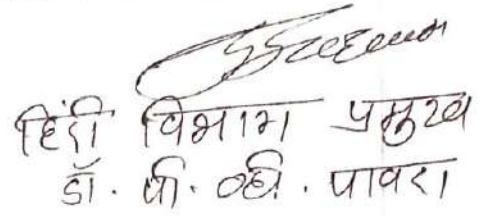 हिंदी विभाग प्रमुख
डॉ. पी. व्ही. पावरा